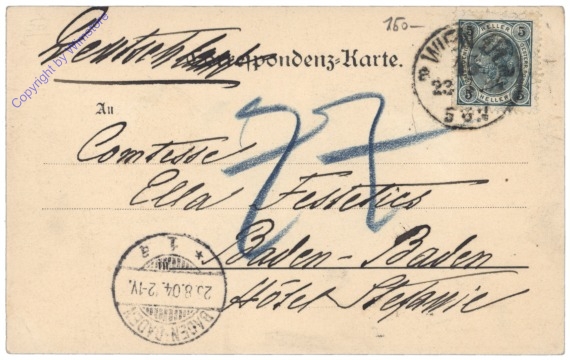 150-
Deutschland
Correspondenz-Karte.
WIEN
5
5
HELLER
5
5
HELLER
An
Comtesse
Ella Festetics
Baden-Baden
Hôtel Stefanie
77
* 1 a
8.04.12-1V.
BADEN-BADEN
Copyright by Wnrstore